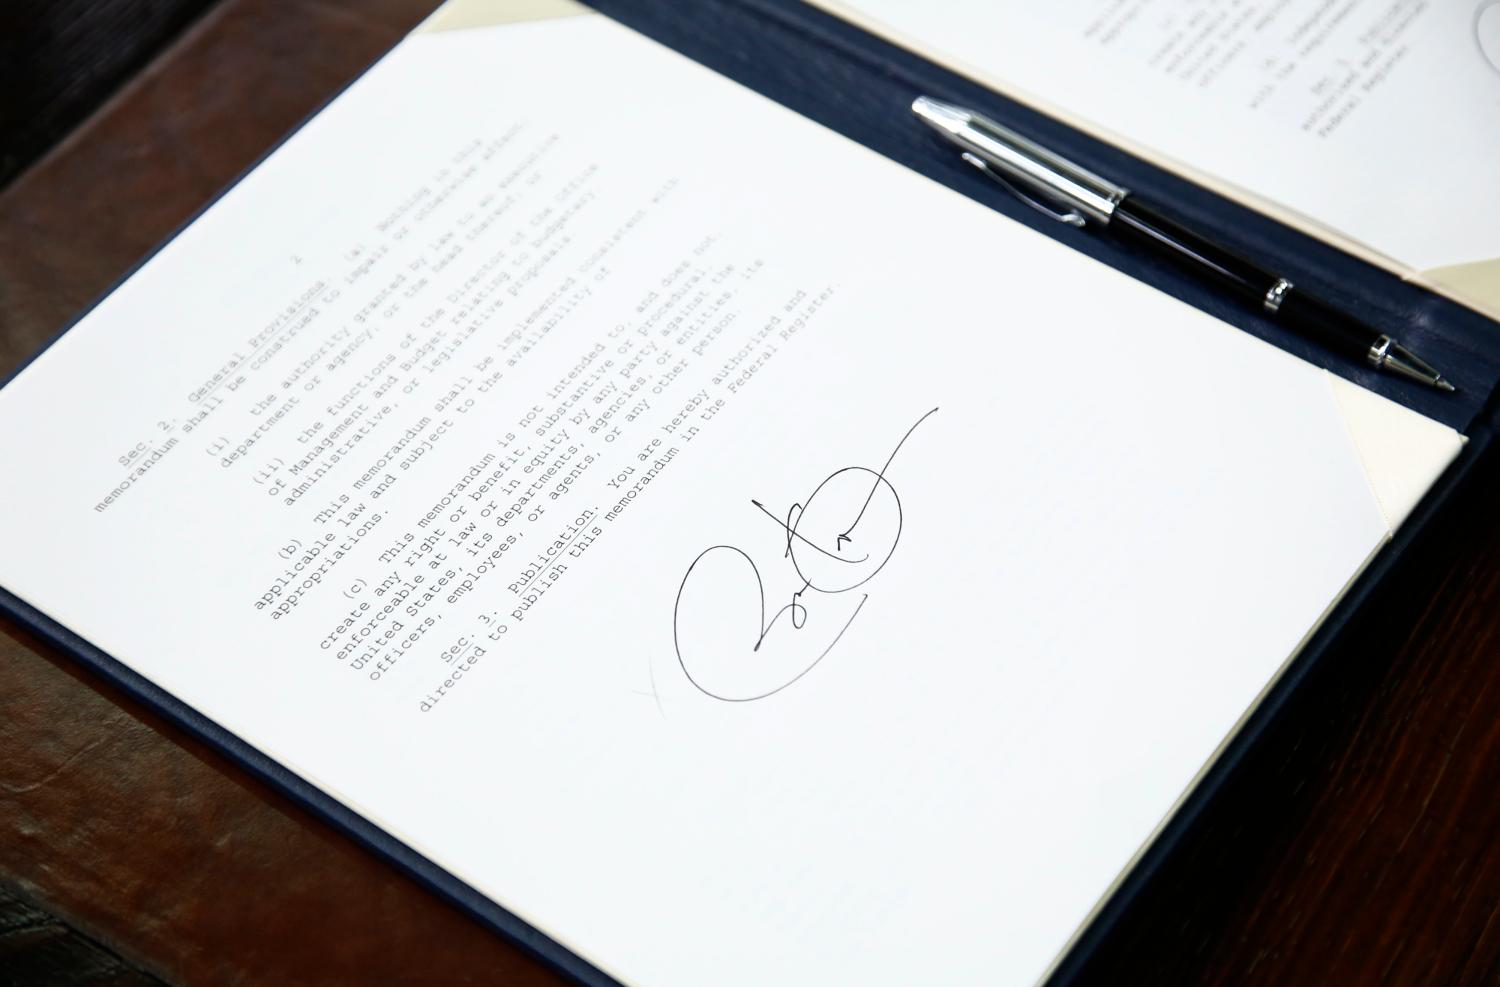 2
Sec. 2. General Provisions. (a) Nothing in this
memorandum shall be construed to impair or otherwise affect:
(i) the authority granted by law to an executive
department or agency, or the head thereof; or
(ii) the functions of the Director of the Office
of Management and Budget relating to budgetary,
administrative, or legislative proposals.
(b) This memorandum shall be implemented consistent with
applicable law and subject to the availability of
appropriations.
(c) This memorandum is not intended to, and does not,
create any right or benefit, substantive or procedural,
enforceable at law or in equity by any party against the
United States, its departments, agencies, or entities, its
officers, employees, or agents, or any other person.
Sec. 3. Publication. You are hereby authorized and
directed to publish this memorandum in the Federal Register.
with the requirements
Sec. 3. Publication
authorized and directed
Federal Register